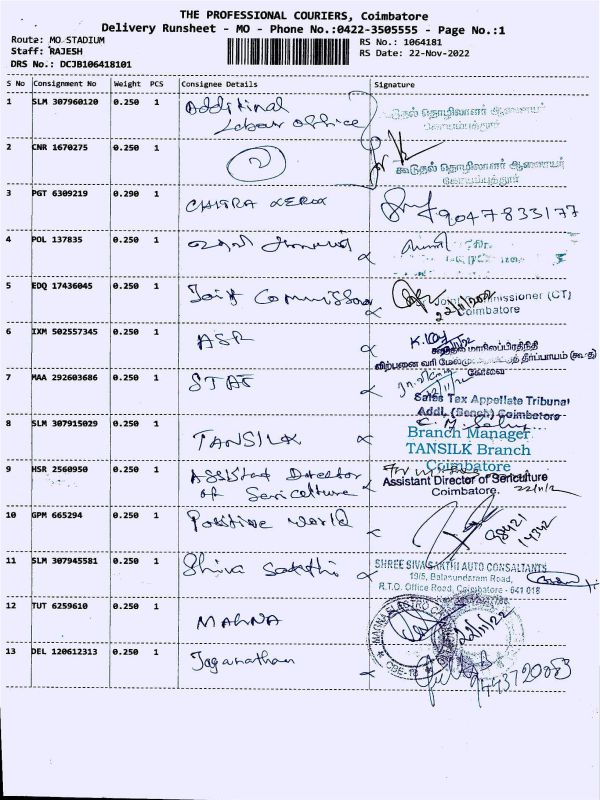 THE PROFESSIONAL COURIERS, Coimbatore
Delivery Runsheet - MO - Phone No.:0422-3505555 - Page No.:1
Route: MO STADIUM
Staff: RAJESH
DRS No.: DCJB106418101
RS No.: 1064181
RS Date: 22-Nov-2022
S No Consignment No Weight PCS Consignee Details Signature
1 SLM 307960120 0.250 1 Additional
Labour office
கூடுதல் தொழிலாளர் ஆணையர்
கோயம்புத்தூர்
2 CNR 1670275 0.250 1 2
கூடுதல் தொழிலாளர் ஆணையர்
கோயம்புத்தூர்
3 PGT 6309219 0.290 1 CHITRA XEROX 9047833177
4 POL 137835 0.250 1
5 EDQ 17436045 0.250 1 Joint Commissioner Joint Commissioner (CT)
22/11/2022 Coimbatore
6 IXM 502557345 0.250 1 ASR
கூடுதல் மாநிலப்பிரதிநிதி
விற்பனை வரி மேல்முறையீட்டுத் தீர்ப்பாயம் (கூ.
கோவை
7 MAA 292603686 0.250 1 STAT
Sales Tax Appellate Tribunal
Addl. (Bench) Coimbatore
8 SLM 307915029 0.250 1 TANSILK
Branch Manager
TANSILK Branch
Coimbatore
9 HSR 2560950 0.250 1 Assistant Director
of Sericulture
Assistant Director of Sericulture
Coimbatore.
10 GPM 665294 0.250 1 Positive World 98421
14342
11 SLM 307945581 0.250 1 Shiva Sakthi
SHREE SIVA SAKTHI AUTO CONSULTANTS
19/5, Balasundaram Road,
R.T.O. Office Road, Coimbatore - 641 018
12 TUT 6259610 0.250 1 MAGNA
MAGNA ELECTRO
CBE-18
22/11/22
13 DEL 120612313 0.250 1 Jaganathan